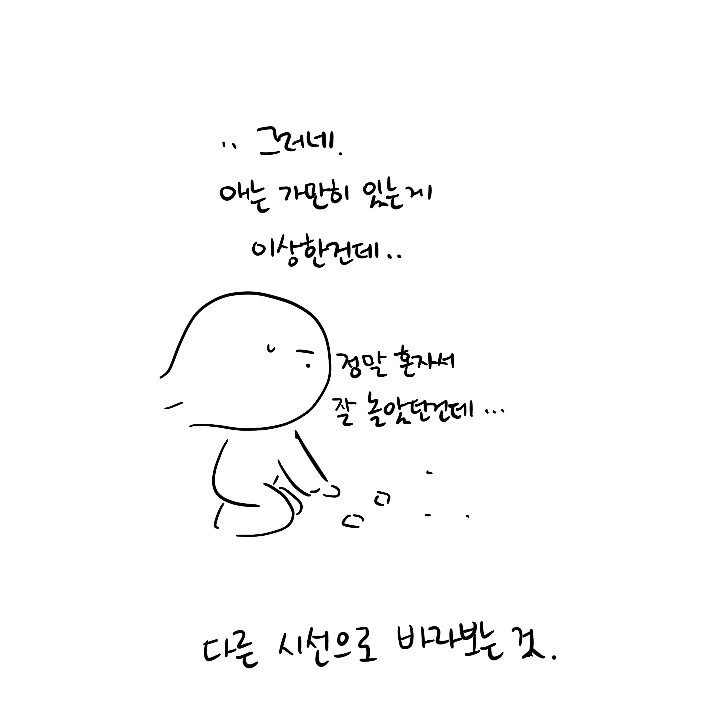 .. 그러네.
애는 가만히 있는게
이상한건데..
정말 혼자서
잘 놀았던건데...
다른 시선으로 바라보는 것.